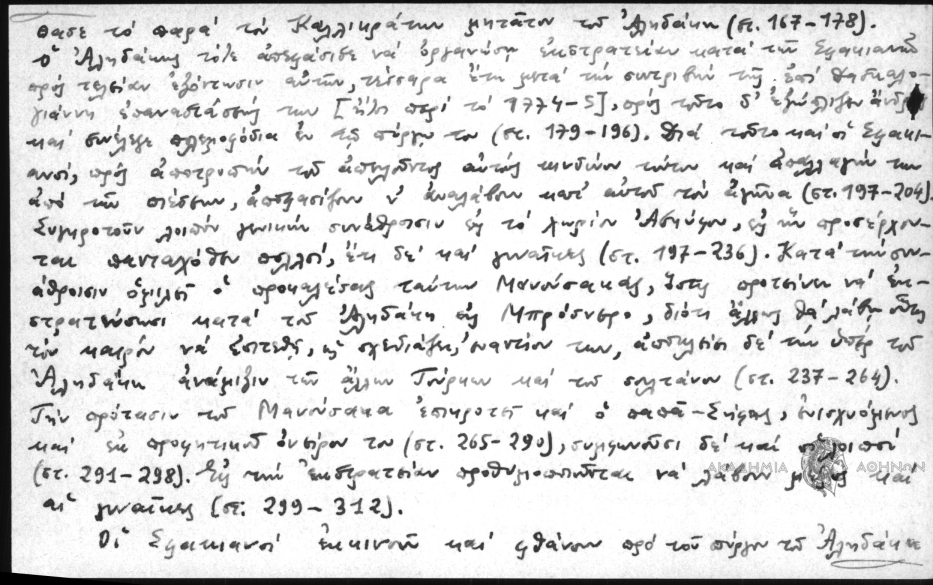 θασε τὸ παρὰ τὸν Καλλικράτην μητᾶτον τοῦ Ἀληδάκη (στ. 167-178).
Ὁ Ἀληδάκης τότε ἀπεφάσισε νὰ ὀργανώσῃ ἐκστρατείαν κατὰ τῶν Σφακιανῶν
πρὸς τελείαν ἐξόντωσιν αὐτῶν, τέσσαρα ἔτη μετὰ τὴν συντριβὴν τῆς ἐπὶ Δασκαλο-
γιάννη ἐπαναστάσεώς των [ἤτοι περὶ τὸ 1774-5], πρὸς τοῦτο δ' ἐξώπλισεν ἄνδρας
καὶ συνέλεξε πολεμοφόδια ἐν τῷ πύργῳ του (στ. 179-196). Διὰ τοῦτο καὶ οἱ Σφακι-
ανοί, πρὸς ἀποτροπὴν τοῦ ἀπειλοῦντος αὐτοὺς κινδύνου τούτου καὶ ἀπαλλαγήν των
ἀπὸ τῶν πιέσεων, ἀποφασίζουν ν' ἀναλάβουν κατ' αὐτοῦ τὸν ἀγῶνα (στ. 197-204).
Συγκροτοῦν λοιπὸν γενικὴν συνάθροισιν εἰς τὸ χωρίον Ἀσκύφου, εἰς ἣν προσέρχον-
ται πανταχόθεν πολλοί, ἔτι δὲ καὶ γυναῖκες (στ. 197-236). Κατὰ τὴν συν-
άθροισιν ὁμιλεῖ ὁ προκαλέσας ταύτην Μανούσακας, ὅστις προτείνει νὰ ἐκ-
στρατεύσωσι κατὰ τοῦ Ἀληδάκη εἰς Μπρόσνερο, διότι ἄλλως θὰ λάβῃ οὗτος
τὸν καιρὸν νὰ ἐπιτεθῇ, ὡς σχεδιάζει, ἐναντίον των, ἀποκλείει δὲ τὴν ὑπὲρ τοῦ
Ἀληδάκη ἀνάμιξιν τῶν ἄλλων Τούρκων καὶ τοῦ σουλτάνου (στ. 237-264).
Τὴν πρότασιν τοῦ Μανούσακα ἐπικροτεῖ καὶ ὁ παπᾶ-Σήφης, ἐνισχυόμενος
καὶ ἐκ προφητικοῦ ὀνείρου του (στ. 265-290), συμφωνοῦσι δὲ καὶ οἱ λοιποί
(στ. 291-298). Εἰς τὴν ἐκστρατείαν προθυμοποιοῦνται νὰ λάβουν μέρος καὶ
αἱ γυναῖκες (στ. 299-312).
Οἱ Σφακιανοὶ ἐκκινοῦν καὶ φθάνουν πρὸ τοῦ πύργου τοῦ Ἀληδάκη
ΑΚΑΔΗΜΙΑ ΑΘΗΝΩΝ